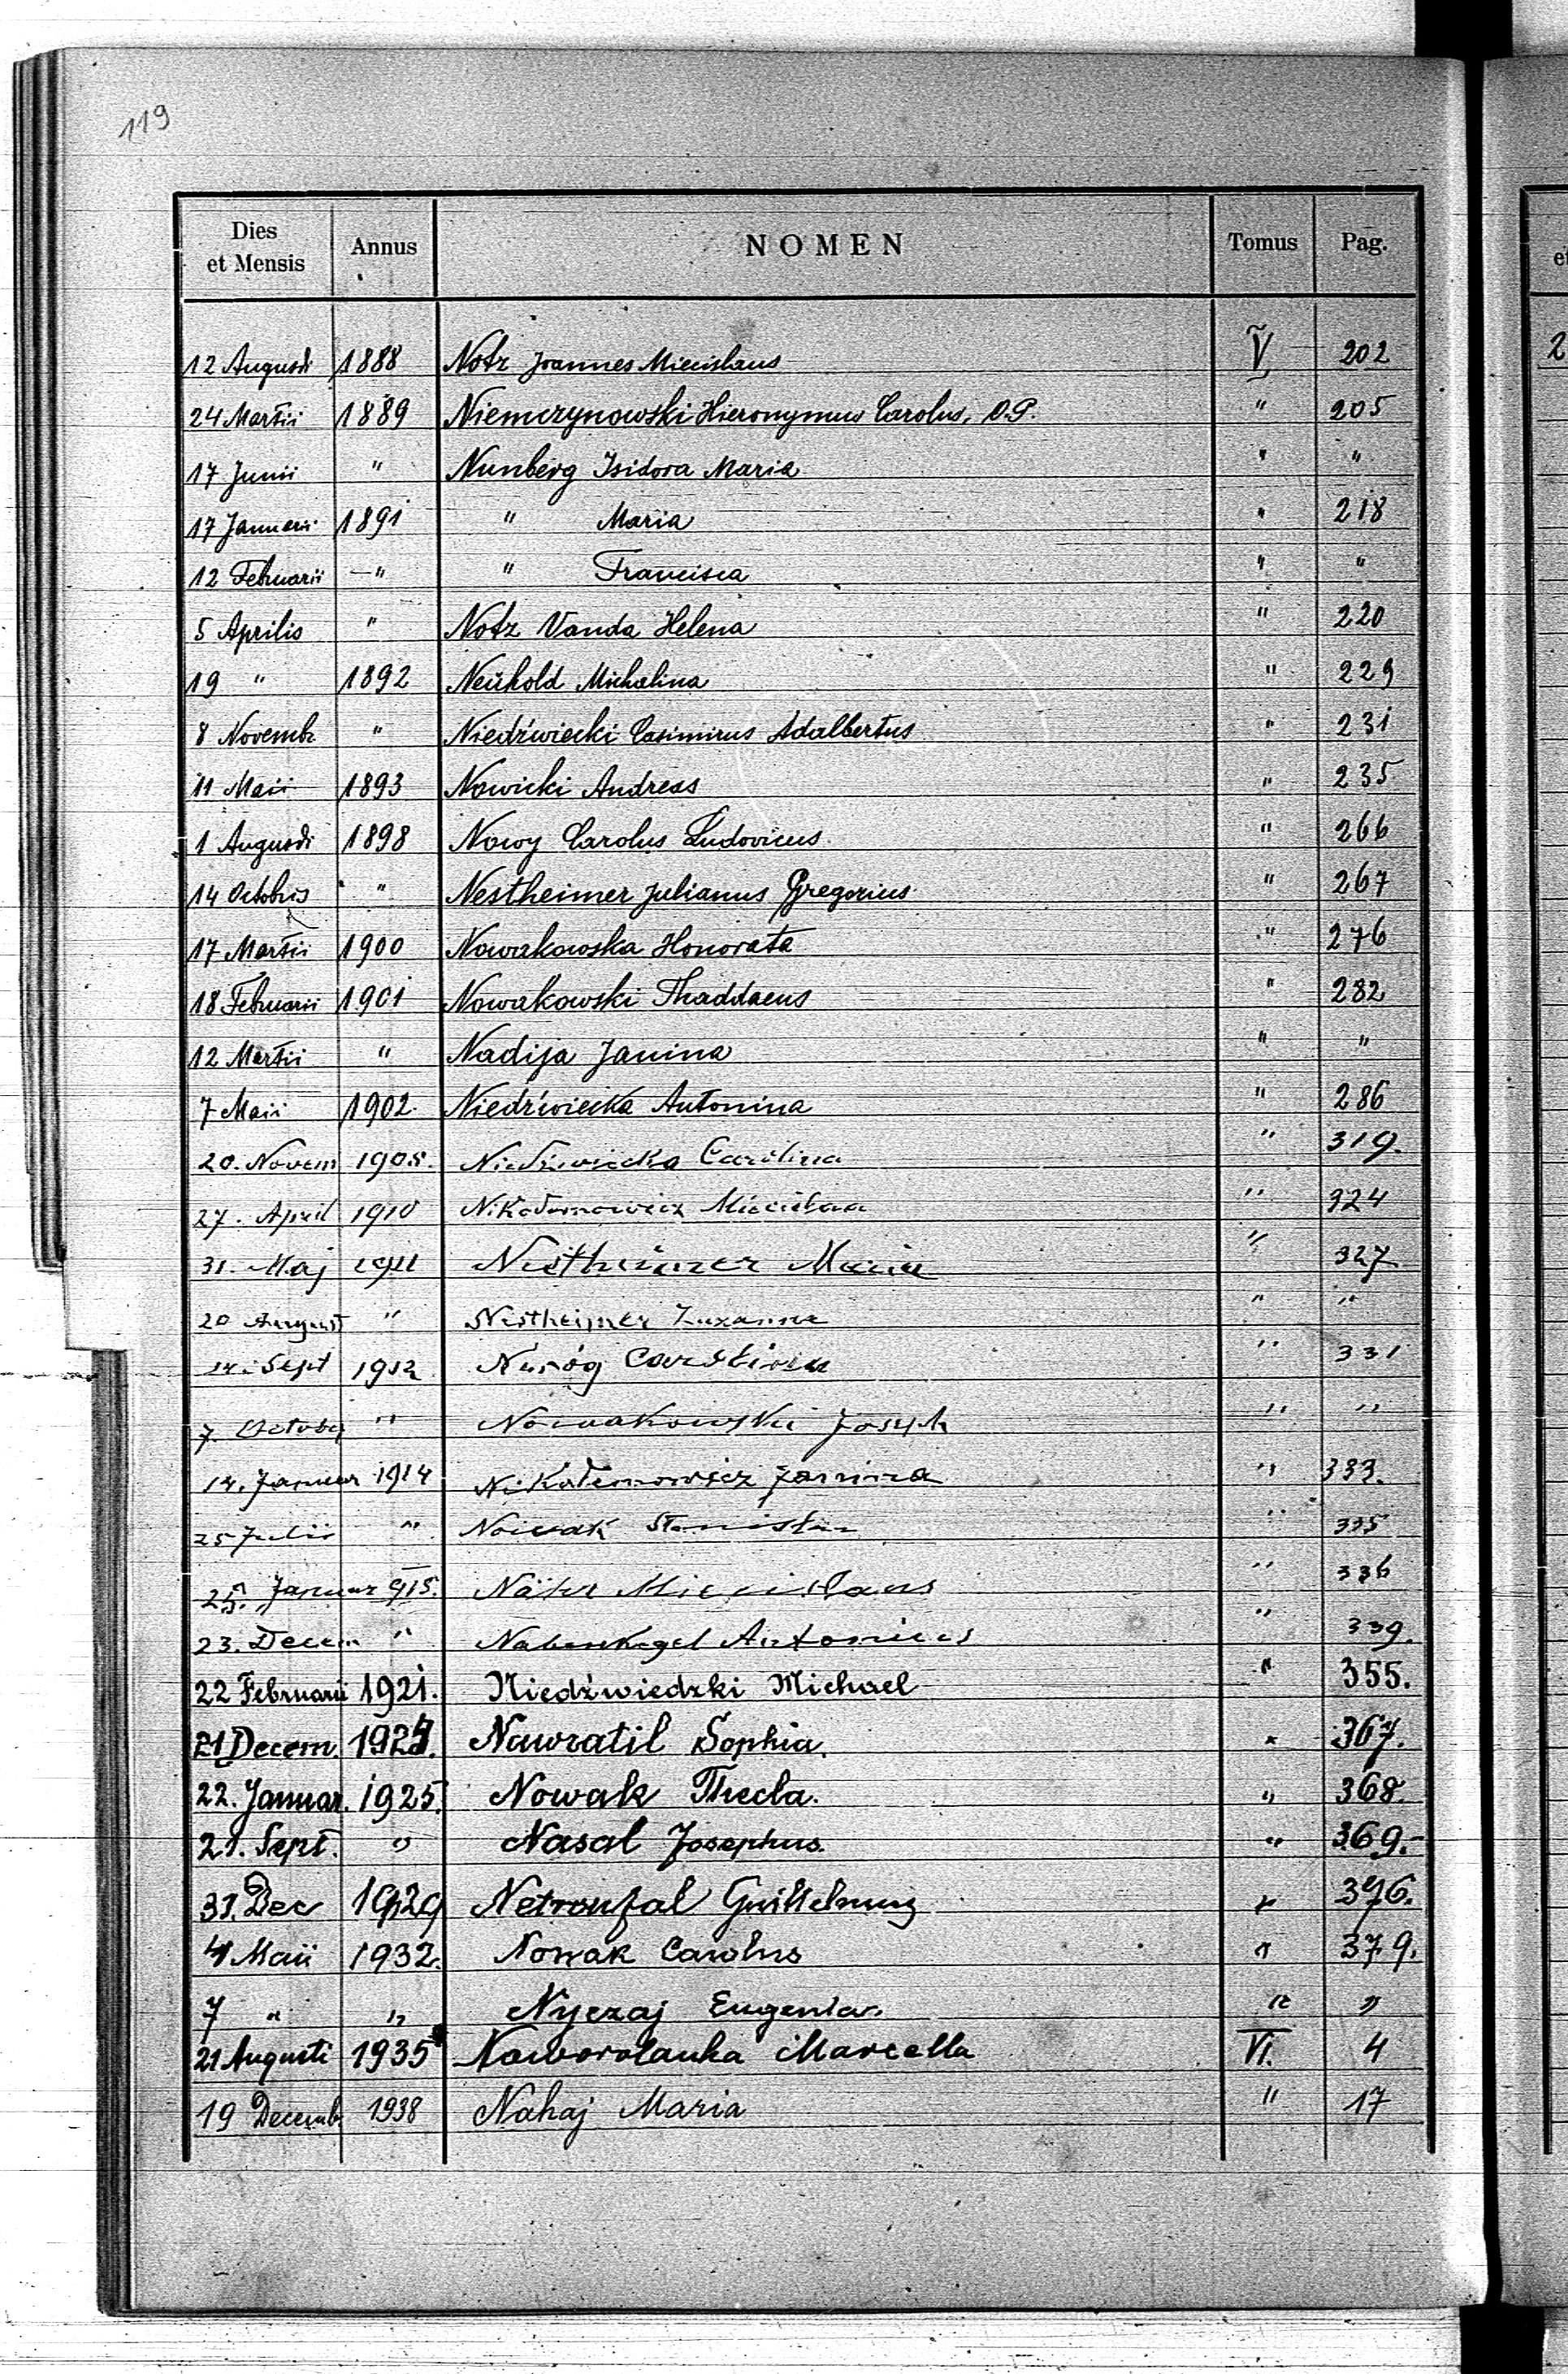 119
Dies et Mensis Annus NOMEN Tomus Pag.
12 Augusti 1888 Notz Joannes Miecislaus V 202
24 Martii 1889 Niemczynowski Hieronymus Carolus, O.P. " 205
17 Junii " Nunberg Isidora Maria " "
17 Januarii 1891 " Maria " 218
12 Februarii -" " Francisca " "
5 Aprilis " Notz Vanda Helena " 220
19 " 1892 Neükold Michalina " 229
8 Novembr " Niedźwiecki Casimirus Adalbertus " 231
11 Maii 1893 Nowicki Andreas " 235
1 Augusti 1898 Nowy Carolus Ludovicus " 266
14 Octobris " Nestheimer Julianus Gregorius " 267
17 Martii 1900 Nowakowska Honorata " 276
18 Februarii 1901 Nowakowski Thaddaeus " 282
12 Martii " Nadija Janina " "
7 Maii 1902 Niedźwiecka Antonina " 286
20. Novem Niedźwiecka Carolina " 319.
27. April 1910 Miecislaa " 324
31. Maj 1911 Nestheimer Maria " 327
20 August " Nestheimer Zuzanna " "
14. Sept 1912 Carolina " 331
7. October " Nowakowski Joseph " "
14. Januar 1914 Janina " 333.
25 Julii " Nowak " 335
25. Januar 915. Miecislaus " 336
23. Decem " Nabenkegel Antonius " 339.
22 Februarii 1921. Niedźwiedzki Michael " 355.
21 Decem. 1924. Nawratil Sophia. " 367.
22. Januar. 1925. Nowak Thecla. " 368.
21. Sept. " Nasal Josephus. " 369.-
31. Dec 1929 Netroufal " 376.
4 Maii 1932. Nowak Carolus " 379.
7 " " Nyczaj Eugenia. " "
21 Augusti 1935 Marcella VI. 4
19 Decemb. 1938 Nahaj Maria " 17
e
2